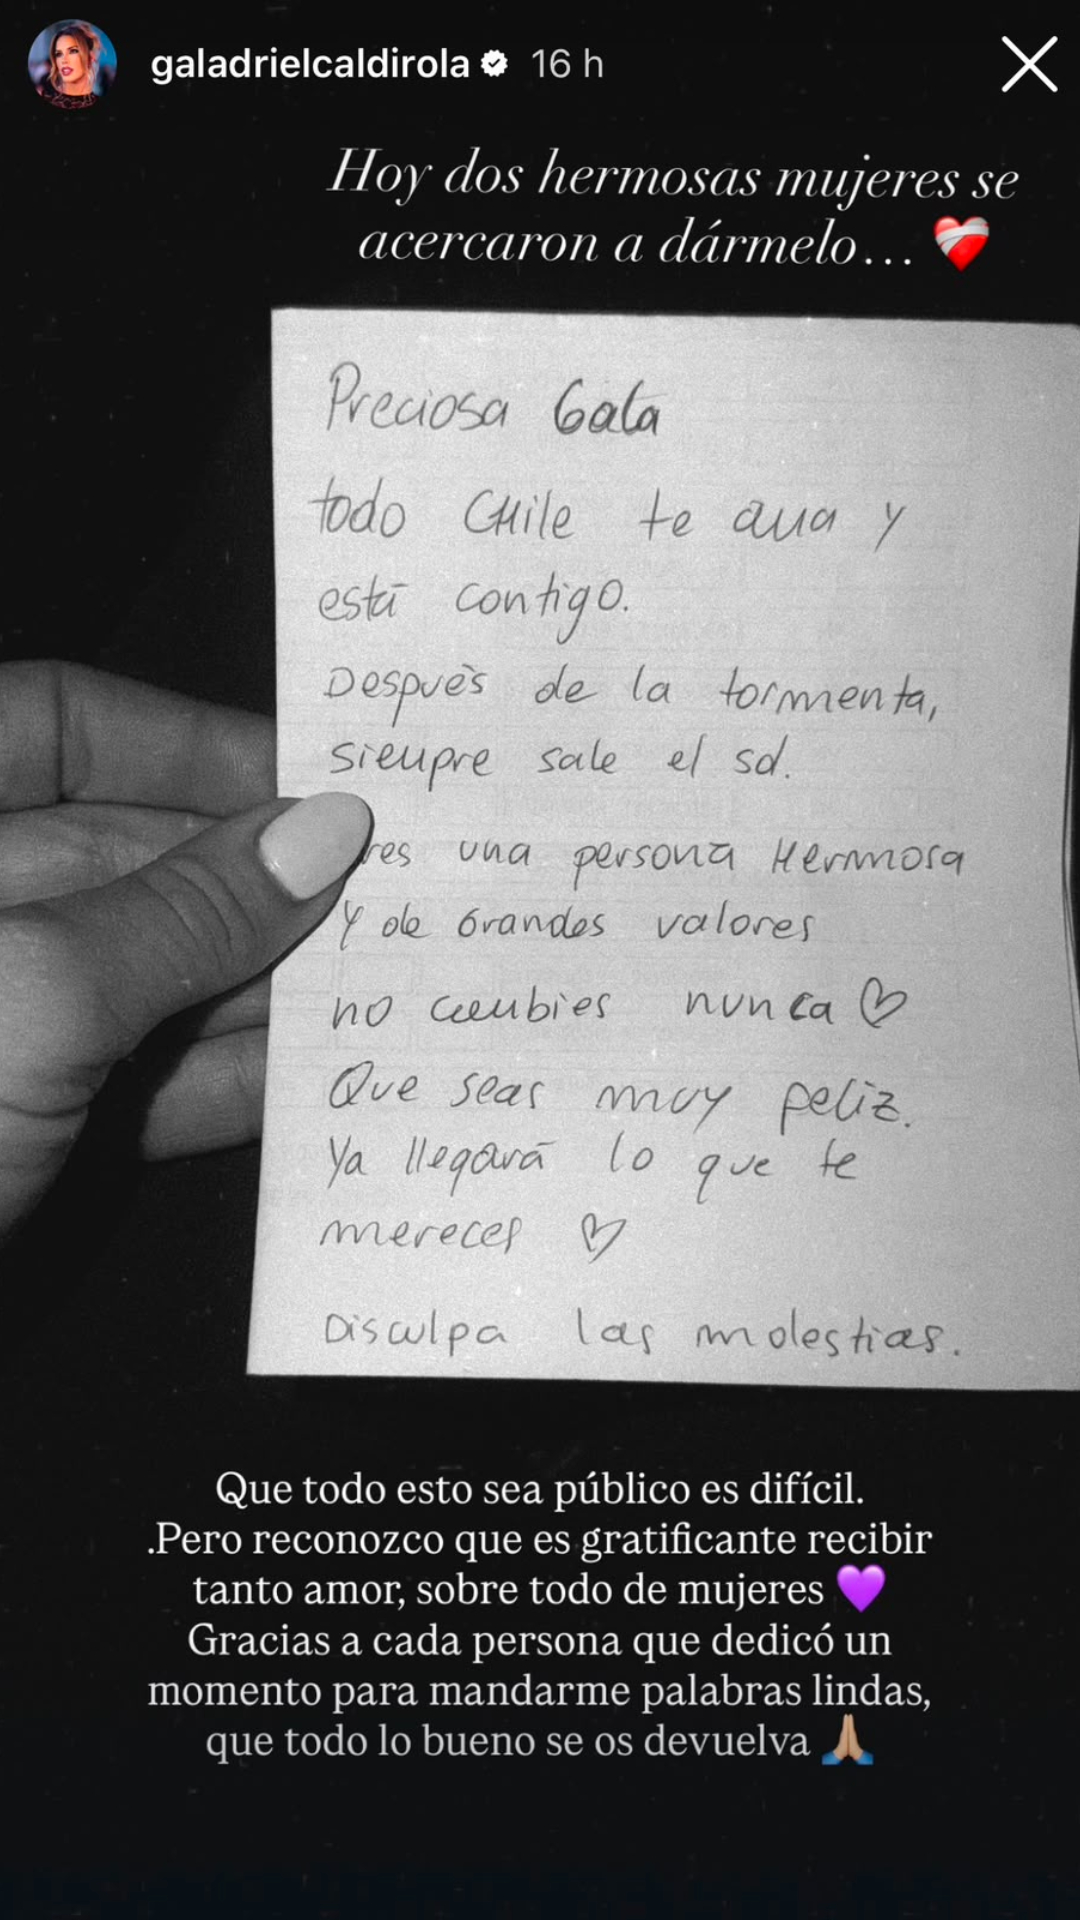 galadrielcaldirola 16 h
Hoy dos hermosas mujeres se
acercaron a dármelo... ❤️‍🩹
Preciosa Gala
todo CHile te ama y
está contigo.
Después de la tormenta,
siempre sale el sol.
res una persona Hermosa
y de Grandes valores
no cambies nunca ♡
Que seas muy feliz.
Ya llegará lo que te
mereces ♡
Disculpa las molestias.
Que todo esto sea público es difícil.
.Pero reconozco que es gratificante recibir
tanto amor, sobre todo de mujeres 💜
Gracias a cada persona que dedicó un
momento para mandarme palabras lindas,
que todo lo bueno se os devuelva 🙏🏼